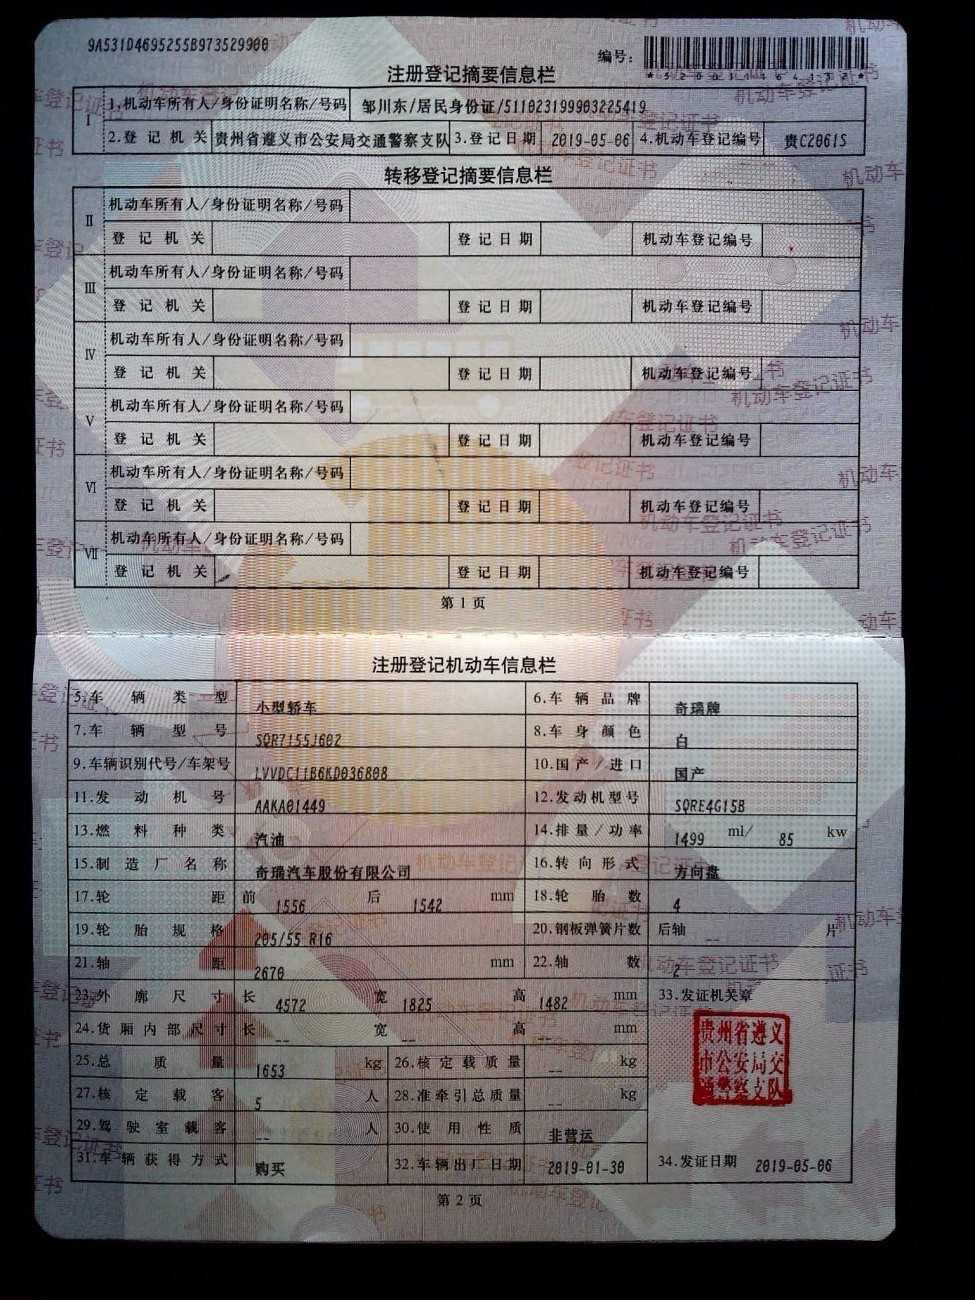 9A531D4695255B973529900
编号:
注册登记摘要信息栏
I 1.机动车所有人/身份证明名称/号码 邹川东/居民身份证/511023199903225419
2.登记机关 贵州省遵义市公安局交通警察支队 3.登记日期 2019-05-06 4.机动车登记编号 贵C206IS
转移登记摘要信息栏
II 机动车所有人/身份证明名称/号码
登记机关 登记日期 机动车登记编号
III 机动车所有人/身份证明名称/号码
登记机关 登记日期 机动车登记编号
IV 机动车所有人/身份证明名称/号码
登记机关 登记日期 机动车登记编号
V 机动车所有人/身份证明名称/号码
登记机关 登记日期 机动车登记编号
VI 机动车所有人/身份证明名称/号码
登记机关 登记日期 机动车登记编号
VII 机动车所有人/身份证明名称/号码
登记机关 登记日期 机动车登记编号
第1页
注册登记机动车信息栏
5.车辆类型 小型轿车 6.车辆品牌 奇瑞牌
7.车辆型号 SQR7155J602 8.车身颜色 白
9.车辆识别代号/车架号 LVVDC11B6KD036808 10.国产/进口 国产
11.发动机号 AAKA01449 12.发动机型号 SQRE4G15B
13.燃料种类 汽油 14.排量/功率 1499 ml/ 85 kw
15.制造厂名称 奇瑞汽车股份有限公司 16.转向形式 方向盘
17.轮距 前 1556 后 1542 mm 18.轮胎数 4
19.轮胎规格 205/55 R16 20.钢板弹簧片数 后轴 -- 片
21.轴距 2670 mm 22.轴数 2
23.外廓尺寸 长 4572 宽 1825 高 1482 mm 33.发证机关章
24.货厢内部尺寸 长 -- 宽 -- 高 -- mm
贵州省遵义
市公安局交
通警察支队
25.总质量 1653 kg 26.核定载质量 -- kg
27.核定载客 5 人 28.准牵引总质量 -- kg
29.驾驶室载客 -- 人 30.使用性质 非营运
31.车辆获得方式 购买 32.车辆出厂日期 2019-01-30 34.发证日期 2019-05-06
第2页